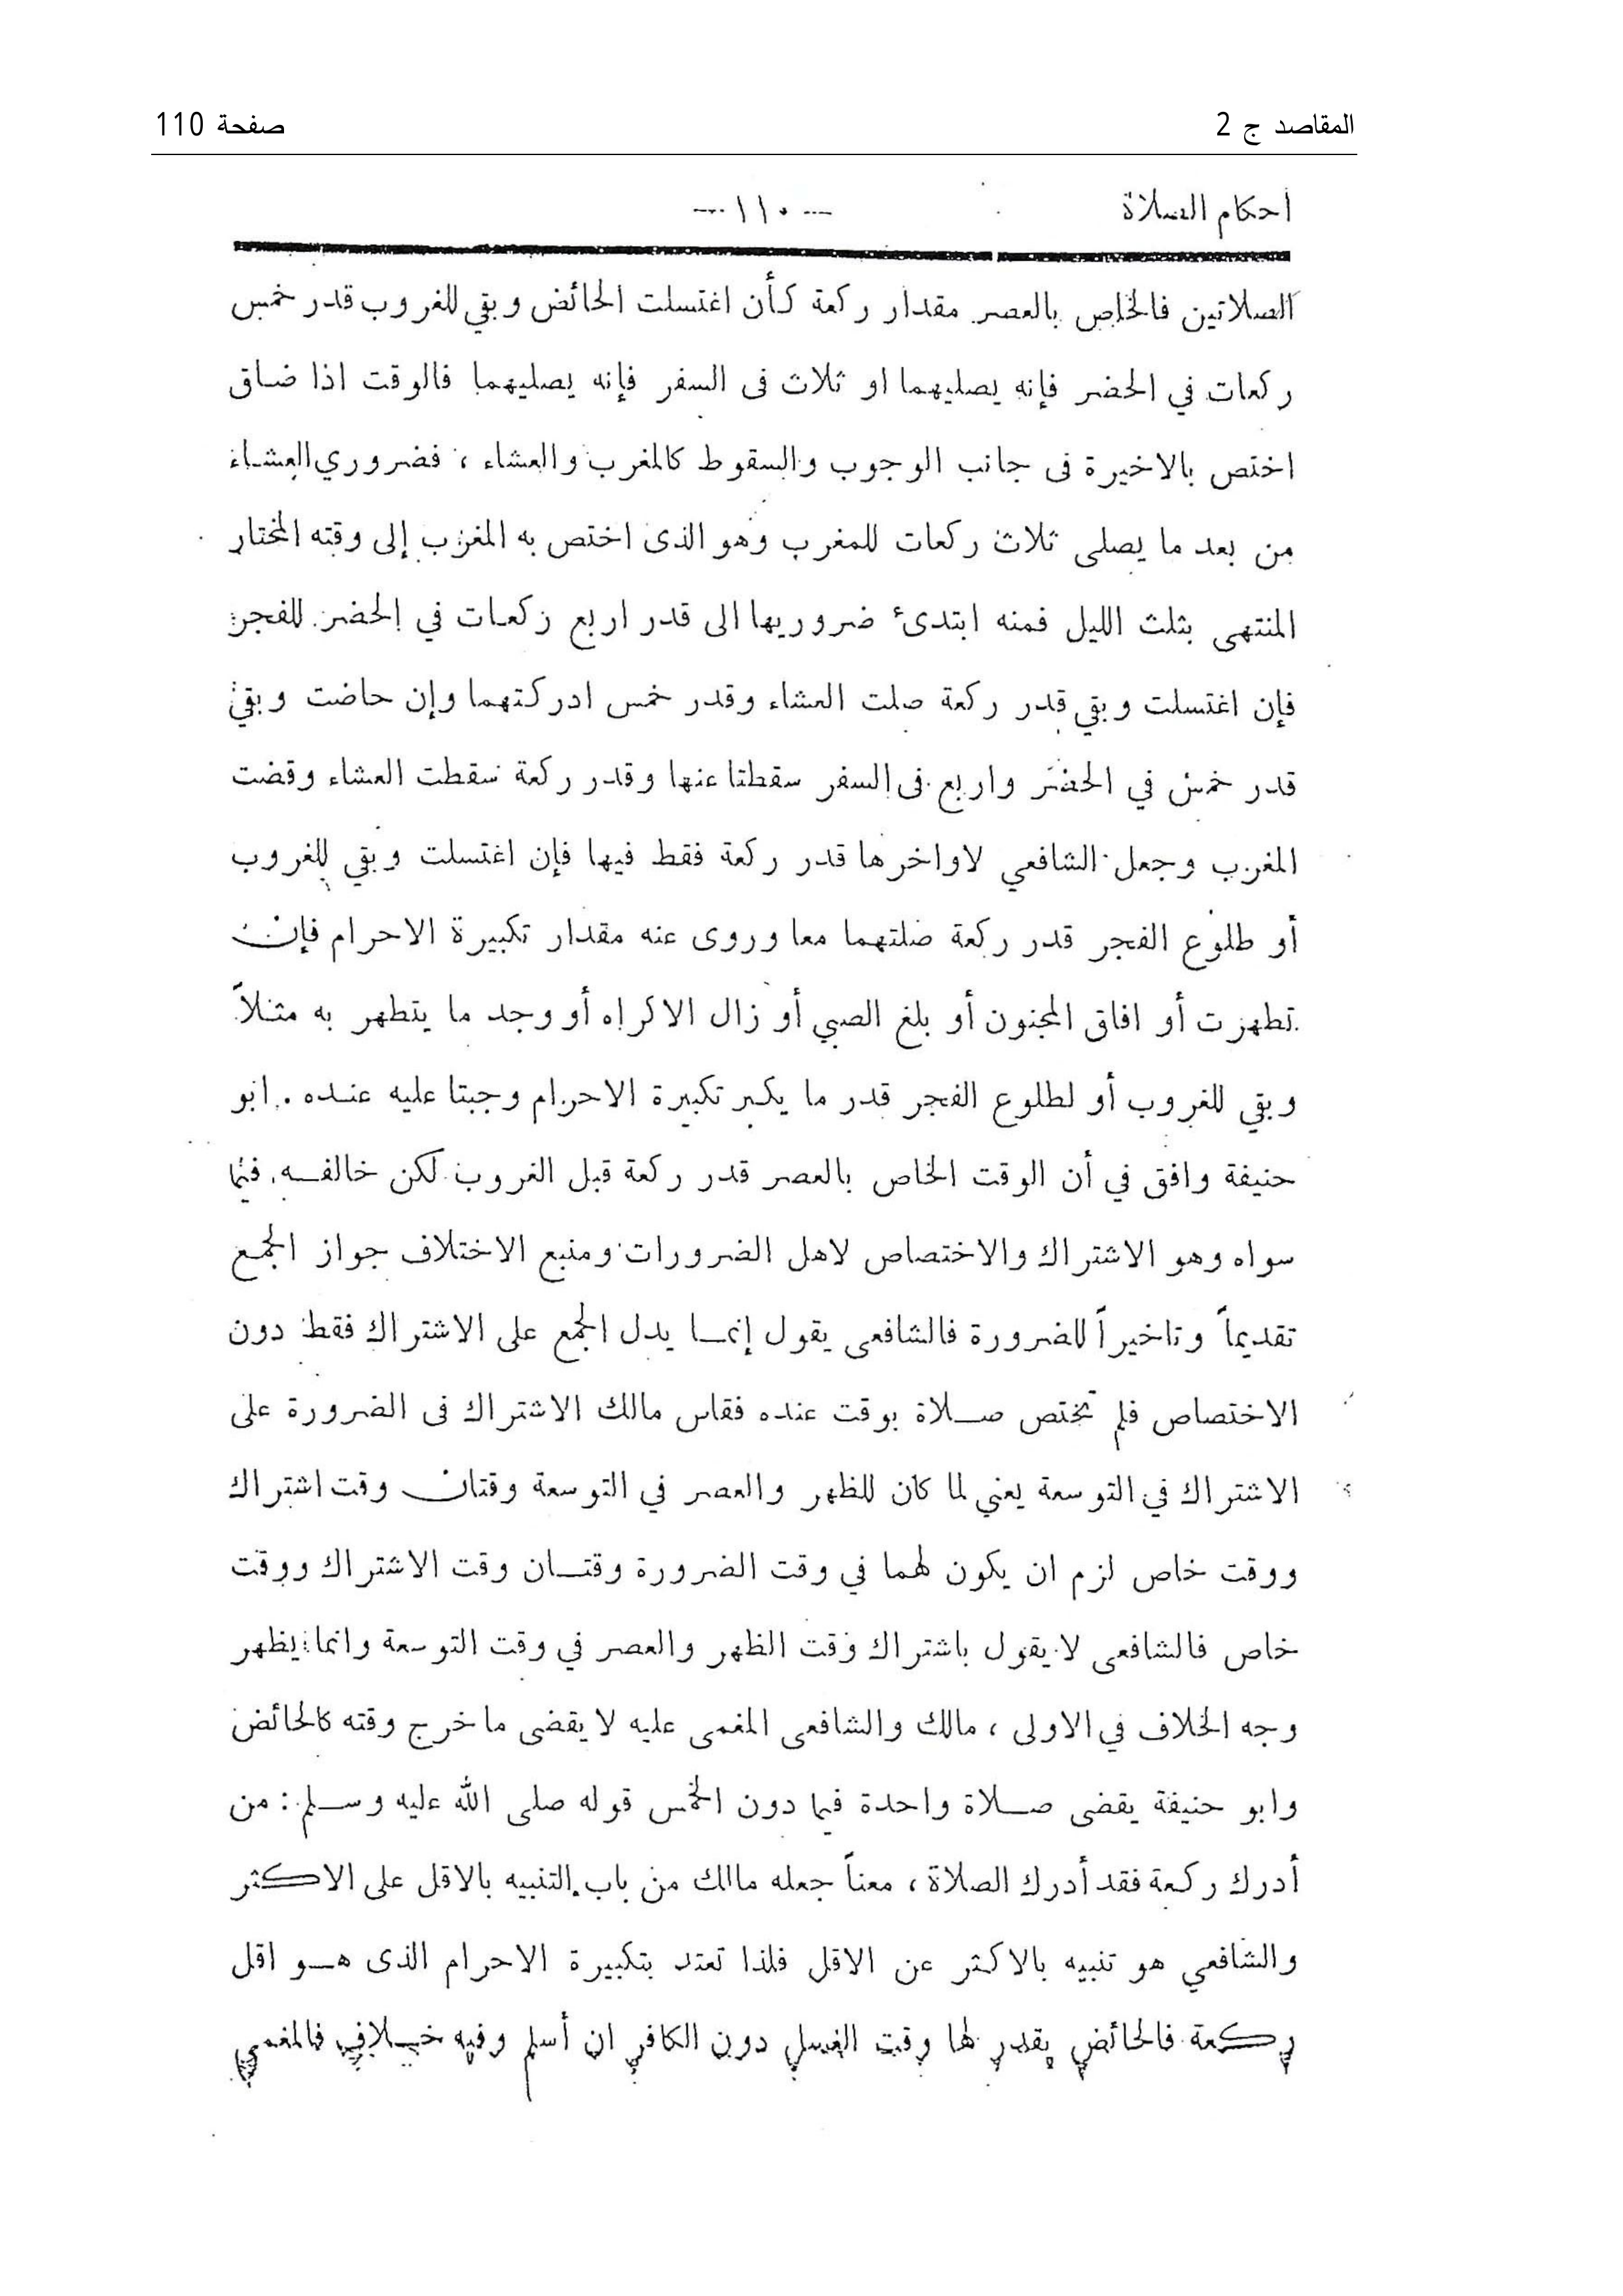 المقاصد ج 2 صفحة 110
أحكام الصلاة --- ١١٠ ---
الصلاتين فالخاص بالعصر مقدار ركعة كأن اغتسلت الحائض وبقي للغروب قدر خمس
ركعات في الحضر فإنه يصليهما او ثلاث فى السفر فإنه يصليهما فالوقت اذا ضاق
اختص بالاخيرة فى جانب الوجوب والسقوط كالمغرب والعشاء ، فضروري العشاء
من بعد ما يصلى ثلاث ركعات للمغرب وهو الذى اختص به المغرب إلى وقته المختار
المنتهى بثلث الليل فمنه ابتدىء ضروريها الى قدر اربع ركعات في الحضر للفجر
فإن اغتسلت وبقي قدر ركعة صلت العشاء وقدر خمس ادركتهما وإن حاضت وبقي
قدر خمس في الحضر واربع فى السفر سقطتا عنها وقدر ركعة سقطت العشاء وقضت
المغرب وجعل الشافعي لاواخرها قدر ركعة فقط فيها فإن اغتسلت وبقي للغروب
أو طلوع الفجر قدر ركعة صلتهما معا وروى عنه مقدار تكبيرة الاحرام فإن
تطهرت أو افاق المجنون أو بلغ الصبي أو زال الاكراه أو وجد ما يتطهر به مثلاً
وبقي للغروب أو لطلوع الفجر قدر ما يكبر تكبيرة الاحرام وجبتا عليه عنده . ابو
حنيفة وافق في أن الوقت الخاص بالعصر قدر ركعة قبل الغروب لكن خالفه فيما
سواه وهو الاشتراك والاختصاص لاهل الضرورات ومنبع الاختلاف جواز الجمع
تقديماً وتاخيراً للضرورة فالشافعى يقول إنما يدل الجمع على الاشتراك فقط دون
الاختصاص فلم تختص صلاة بوقت عنده فقاس مالك الاشتراك فى الضرورة على
الاشتراك في التوسعة يعني لما كان للظهر والعصر في التوسعة وقتان وقت اشتراك
ووقت خاص لزم ان يكون لهما في وقت الضرورة وقتان وقت الاشتراك ووقت
خاص فالشافعى لا يقول باشتراك وقت الظهر والعصر في وقت التوسعة وانما يظهر
وجه الخلاف في الاولى ، مالك والشافعى المغمى عليه لا يقضى ما خرج وقته كالحائض
وابو حنيفة يقضى صلاة واحدة فيما دون الخمس قوله صلى الله عليه وسلم : من
أدرك ركعة فقد أدرك الصلاة ، معناً جعله مالك من باب التنبيه بالاقل على الاكثر
والشافعي هو تنبيه بالاكثر عن الاقل فلذا تعتد بتكبيرة الاحرام الذى هو اقل
ركعة فالحائض يقدر لها وقت الغسل دون الكافر ان أسلم وفيه خلاف فالمغمى